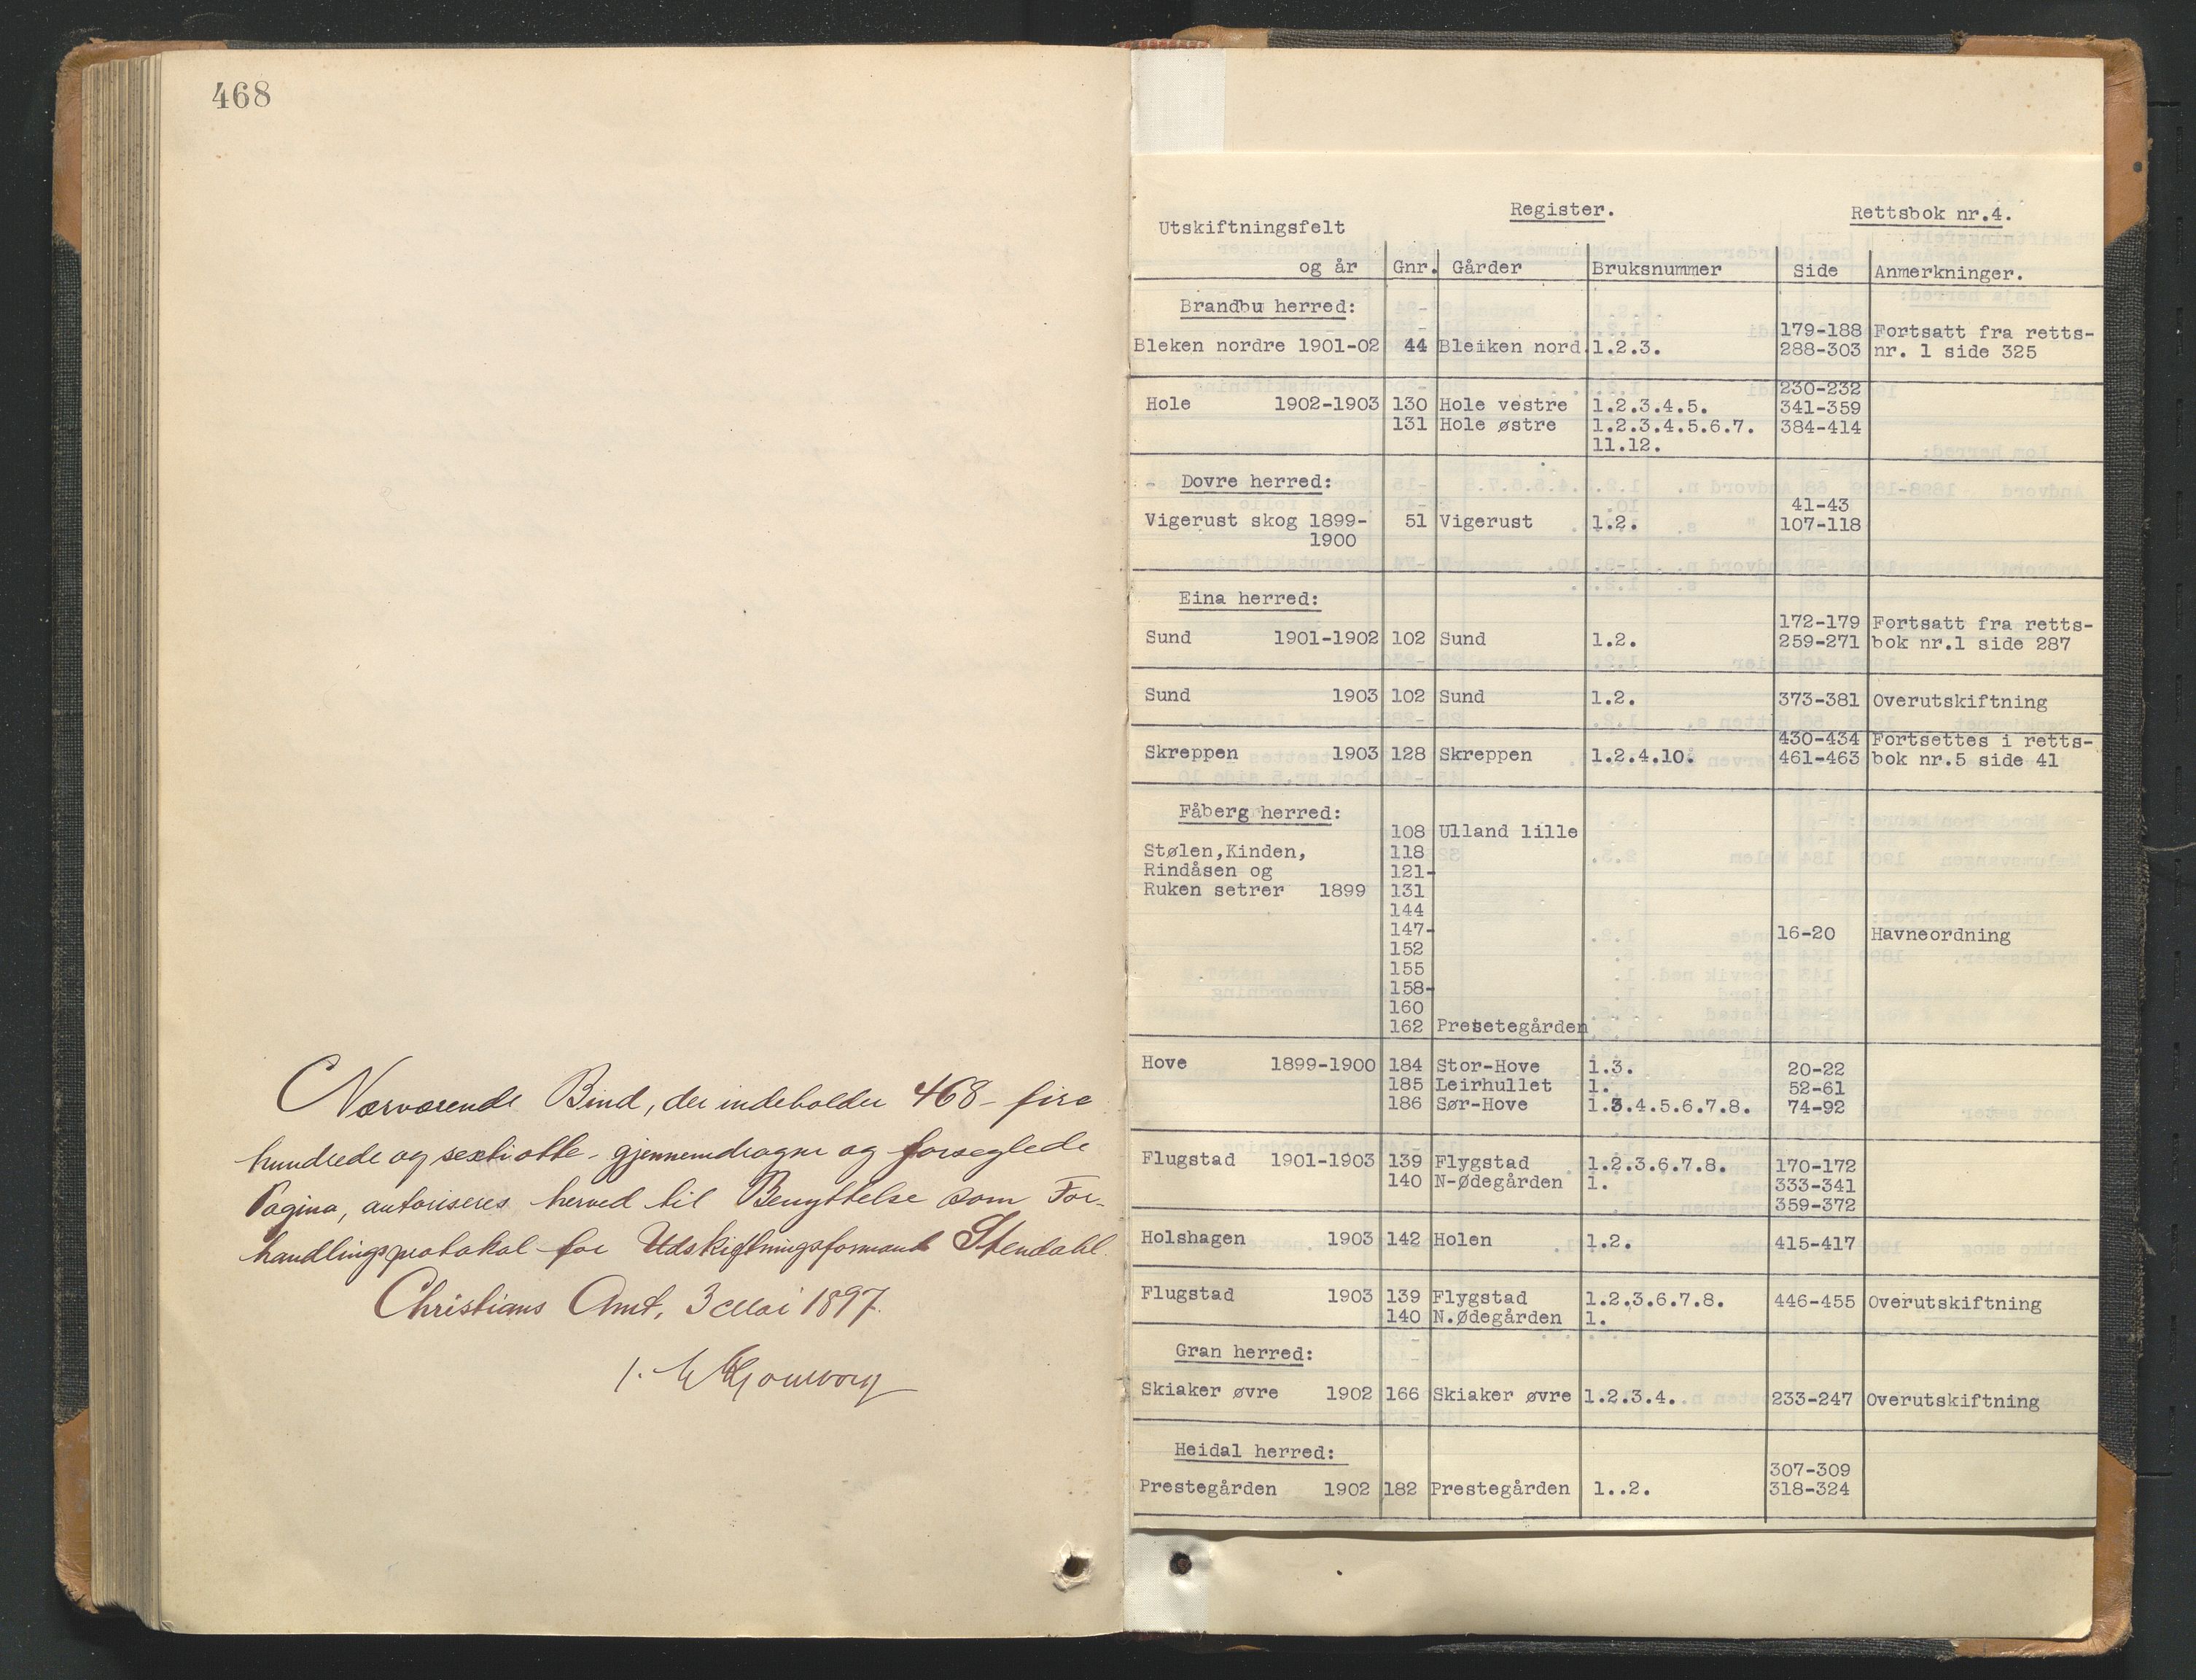 468
Nærværende Bind, der indeholder 468 - fire
hundrede og sextiotte - gjennemdragne og forseglede
Pagina, autoriseres herved til Benyttelse som For-
handlingsprotokol for Udskiftningsformand Stendahl.
Christians Amt, 3 Mai 1897.
Register.
Rettsbok nr.4.
Utskiftningsfelt
og år Gnr. Gårder Bruksnummer Side Anmerkninger.
Brandbu herred:
179-188 Fortsatt fra retts-
Bleken nordre 1901-02 44 Bleiken nord. 1.2.3. 288-303 nr. 1 side 325
230-232
Hole 1902-1903 130 Hole vestre 1.2.3.4.5. 341-359
131 Hole østre 1.2.3.4.5.6.7. 384-414
11.12.
Dovre herred:
41-43
Vigerust skog 1899- 51 Vigerust 1.2. 107-118
1900
Eina herred:
172-179 Fortsatt fra retts-
Sund 1901-1902 102 Sund 1.2. 259-271 bok nr.1 side 287
Sund 1903 102 Sund 1.2. 373-381 Overutskiftning
430-434 Fortsettes i retts-
Skreppen 1903 128 Skreppen 1.2.4.10. 461-463 bok nr.5 side 41
Fåberg herred:
108 Ulland lille
Stølen,Kinden, 118
Rindåsen og 121-
Ruken setrer 1899 131
144
147- 16-20 Havneordning
152
155
158-
160
162 Presetegården
Hove 1899-1900 184 Stor-Hove 1.3. 20-22
185 Leirhullet 1. 52-61
186 Sør-Hove 1.3.4.5.6.7.8. 74-92
Flugstad 1901-1903 139 Flygstad 1.2.3.6.7.8. 170-172
140 N-Ødegården 1. 333-341
359-372
Holshagen 1903 142 Holen 1.2. 415-417
Flugstad 1903 139 Flygstad 1.2.3.6.7.8. 446-455 Overutskiftning
140 N.Ødegården 1.
Gran herred:
Skiaker øvre 1902 166 Skiaker øvre 1.2.3.4. 233-247 Overutskiftning
Heidal herred:
307-309
Prestegården 1902 182 Prestegården 1..2. 318-324